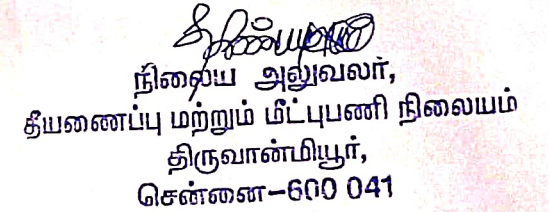 நிலைய அலுவலர்,
தீயணைப்பு மற்றும் மீட்புபணி நிலையம்
திருவான்மியூர்,
சென்னை-600 041